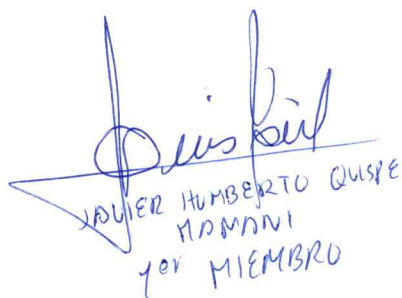 JAVIER HUMBERTO QUISPE
MAMANI
1er MIEMBRO